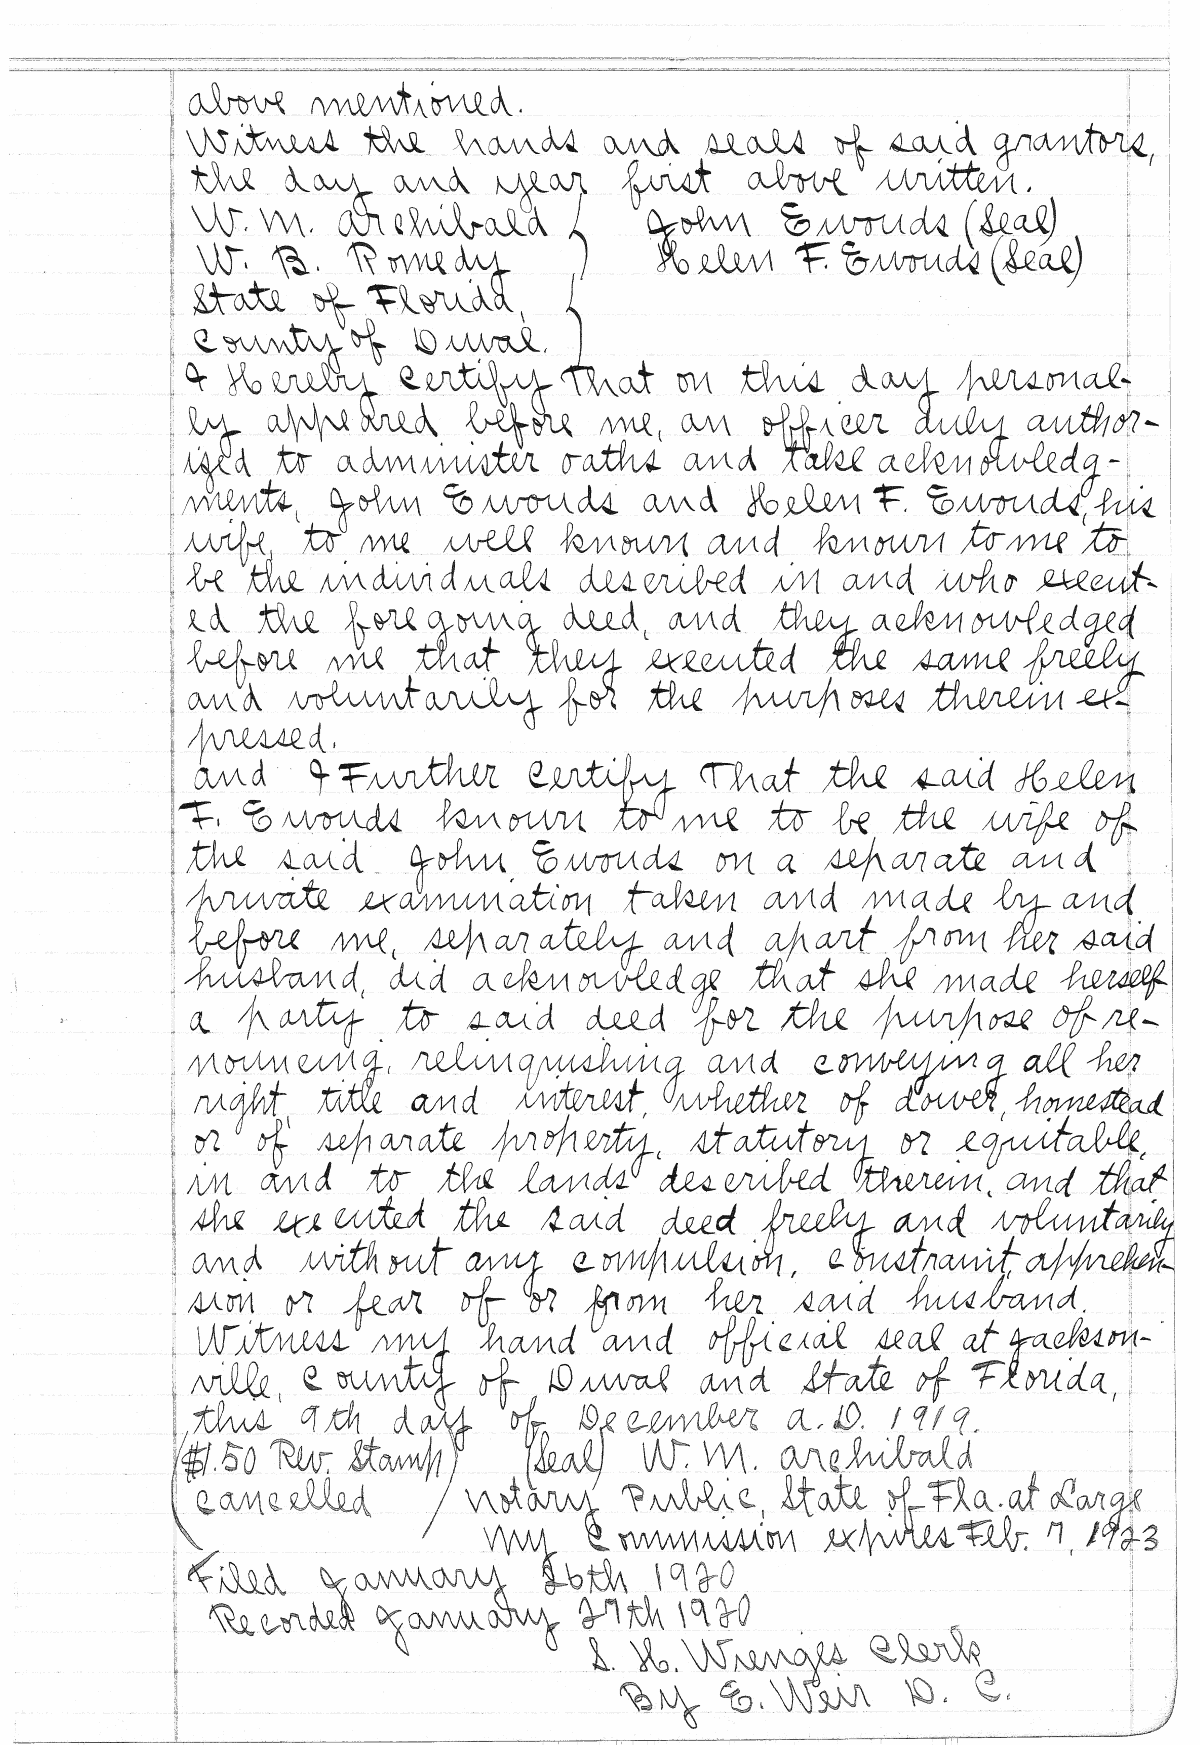 above mentioned.
Witness the hands and seals of said grantors,
the day and year first above written.
W. M. Archibald } John Ewouds (Seal)
W. B. Romedy } Helen F. Ewouds (Seal)
State of Florida, }
County of Duval. }
I Hereby Certify That on this day personal-
ly appeared before me, an officer duly author-
ized to administer oaths and take acknowledg-
ments, John Ewouds and Helen F. Ewouds, his
wife, to me well known and known to me to
be the individuals described in and who execut-
ed the foregoing deed, and they acknowledged
before me that they executed the same freely
and voluntarily for the purposes therein ex-
pressed.
And I Further Certify That the said Helen
F. Ewouds known to me to be the wife of
the said John Ewouds on a separate and
private examination taken and made by and
before me, separately and apart from her said
husband, did acknowledge that she made herself
a party to said deed for the purpose of re-
nouncing, relinquishing and conveying all her
right, title and interest, whether of dower, homestead
or of separate property, statutory or equitable,
in and to the lands described therein, and that
she executed the said deed freely and voluntarily
and without any compulsion, constraint, apprehen-
sion or fear of or from her said husband.
Witness my hand and official seal at Jackson-
ville, County of Duval and State of Florida,
this 9th day of December A.D. 1919.
($1.50 Rev. Stamp) (Seal) W. M. Archibald
cancelled / Notary Public, State of Fla. at Large
My Commission expires Feb. 7, 1923
Filed January 26th 1920
Recorded January 27th 1920
S. H. Wienges Clerk
By E. Weir D. C.